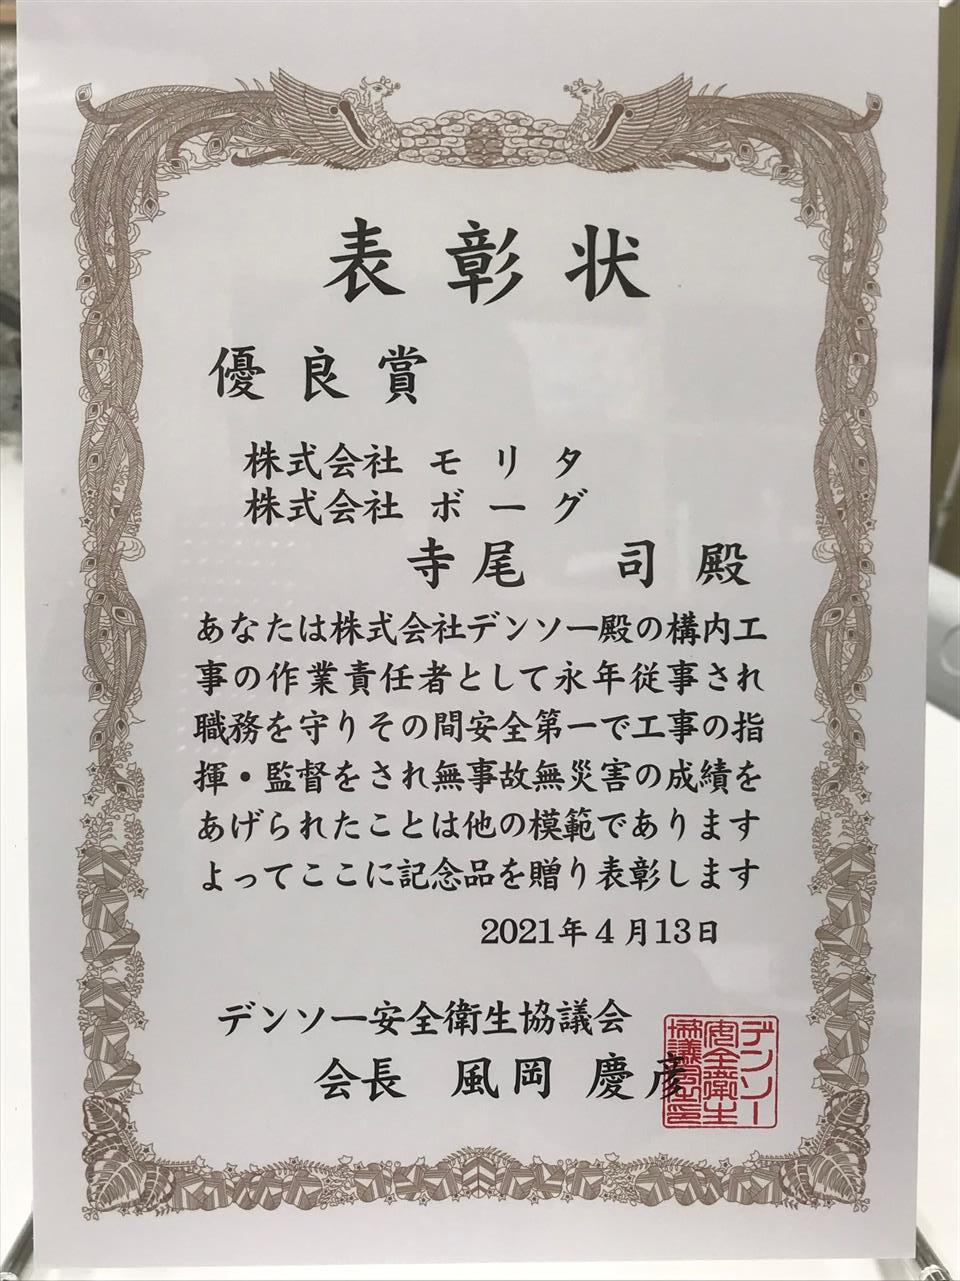 表彰状
優良賞
株式会社 モリタ
株式会社 ボーグ
寺尾 司 殿
あなたは株式会社デンソー殿の構内工
事の作業責任者として永年従事され
職務を守りその間安全第一で工事の指
揮・監督をされ無事故無災害の成績を
あげられたことは他の模範であります
よってここに記念品を贈り表彰します
2021年4月13日
デンソー安全衛生協議会
会長 風岡 慶彦
デンソー
安全衛生
協議会之印